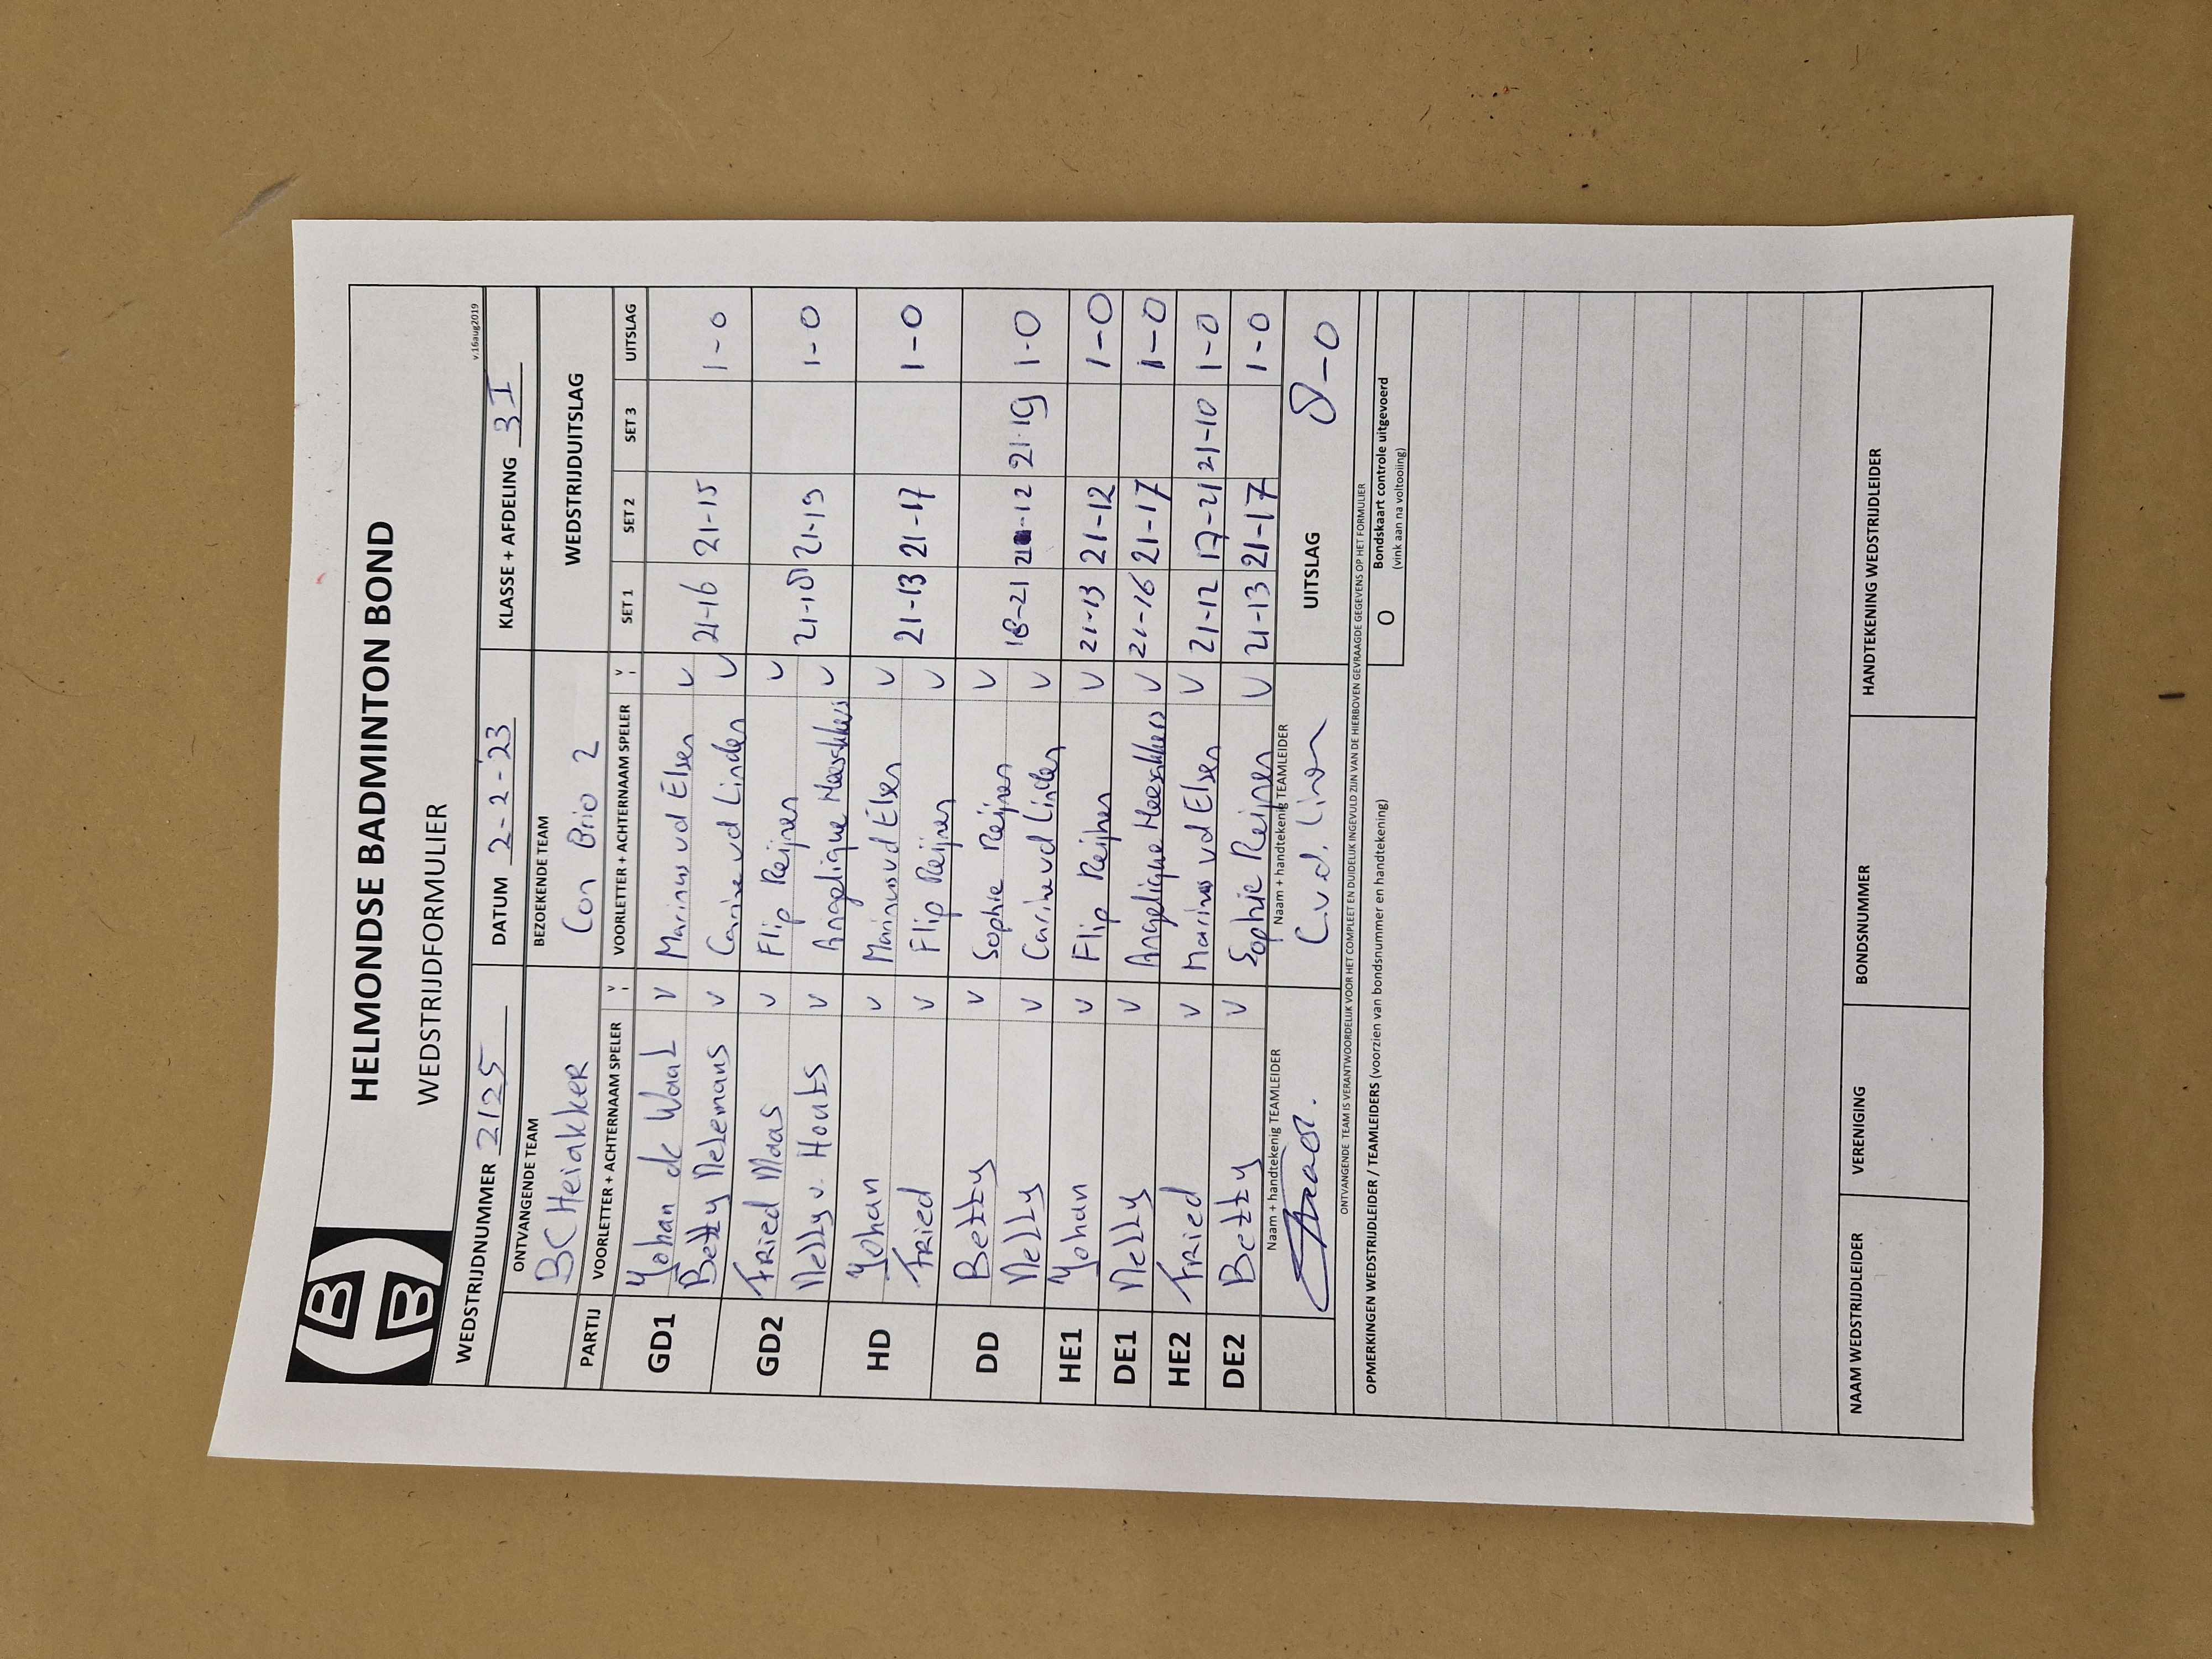 HBB
HELMONDSE BADMINTON BOND
WEDSTRIJDFORMULIER
v.16aug2019
WEDSTRIJDNUMMER 2125 DATUM 2-2-'23 KLASSE + AFDELING 3I
ONTVANGENDE TEAM BEZOEKENDE TEAM WEDSTRIJDUITSLAG
BC Heiakker Con Brio 2
PARTIJ VOORLETTER + ACHTERNAAM SPELER V VOORLETTER + ACHTERNAAM SPELER V SET 1 SET 2 SET 3 UITSLAG
GD1 Yohan de Waal V Marinus vd Elsen V
Betty Nelemans V Carine vd Linden V 21-16 21-15 1-0
GD2 Fried Maas V Flip Reijnen V
Nelly v. Houts V Angelique Meeskkers V 21-18 21-19 1-0
HD Yohan V Marinus vd Elsen V
Fried V Flip Reijnen V 21-13 21-17 1-0
DD Betty V Sophie Reijnen V
Nelly V Carine vd Linden V 18-21 21-12 21-19 1-0
HE1 Yohan V Flip Reijnen V 21-13 21-12 1-0
DE1 Nelly V Angelique Meeskkers V 21-16 21-17 1-0
HE2 Fried V Marinus vd Elsen V 21-12 17-21 21-10 1-0
DE2 Betty V Sophie Reijnen V 21-13 21-17 1-0
Naam + handtekenig TEAMLEIDER Naam + handtekenig TEAMLEIDER UITSLAG 8-0
C.vd.
ONTVANGENDE TEAM IS VERANTWOORDELIJK VOOR HET COMPLEET EN DUIDELIJK INGEVULD ZIJN VAN DE HIERBOVEN GEVRAAGDE GEGEVENS OP HET FORMULIER
OPMERKINGEN WEDSTRIJDLEIDER / TEAMLEIDERS (voorzien van bondsnummer en handtekening)
O Bondskaart controle uitgevoerd
(vink aan na voltooiing)
NAAM WEDSTRIJDLEIDER VERENIGING BONDSNUMMER HANDTEKENING WEDSTRIJDLEIDER